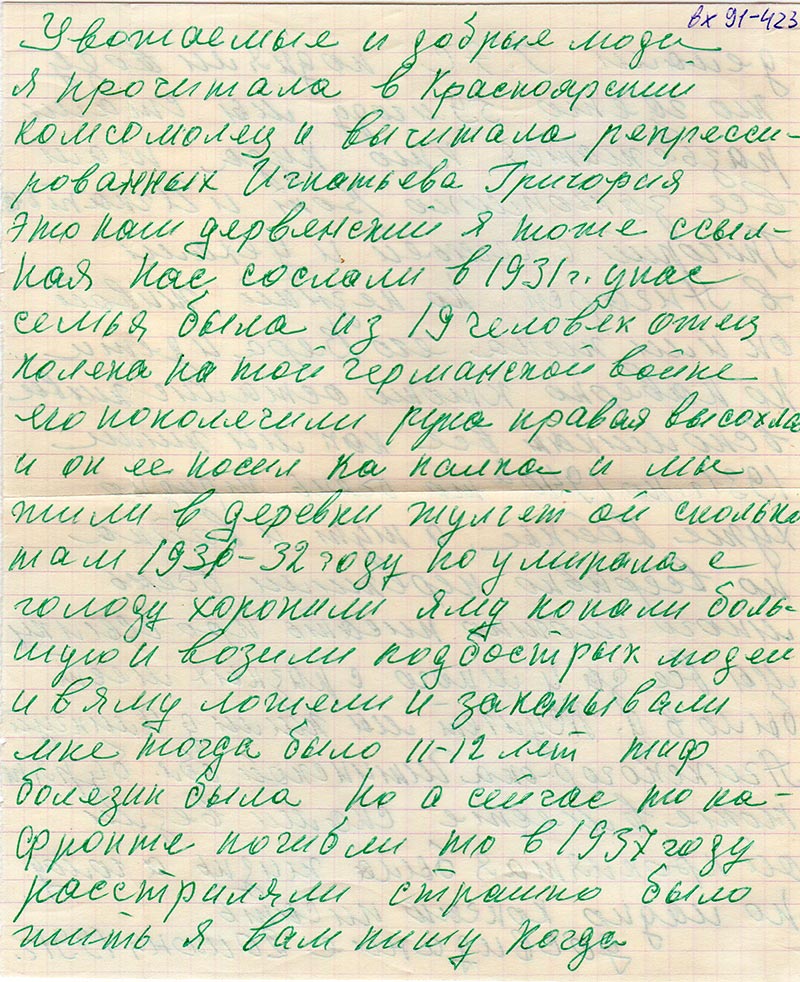 вх 91-423
Уважаемые и добрые люди
я прочитала в Красноярский
комсомолец и вычитала репресси-
рованных Игнатьева Григория
это наш дервенский я тоже ссыл-
ная нас сослали в 1931 г. унас
семья была из 19 человек отец
колека на той германской войне
его поколечили рука правая высохла
и он ее носил на палка и мы
жили в деревки жулгет ой сколько
там 1931-32 году по умирала с
голоду хоронили яму копали боль-
шую и возили людей
и вяму ложели и закапывали
мне тогда было 11-12 лет тиф
болезин была но а сейчас то на-
фронте погибли то в 1937 году
расстриляли страшно было
жить я вам пишу когда